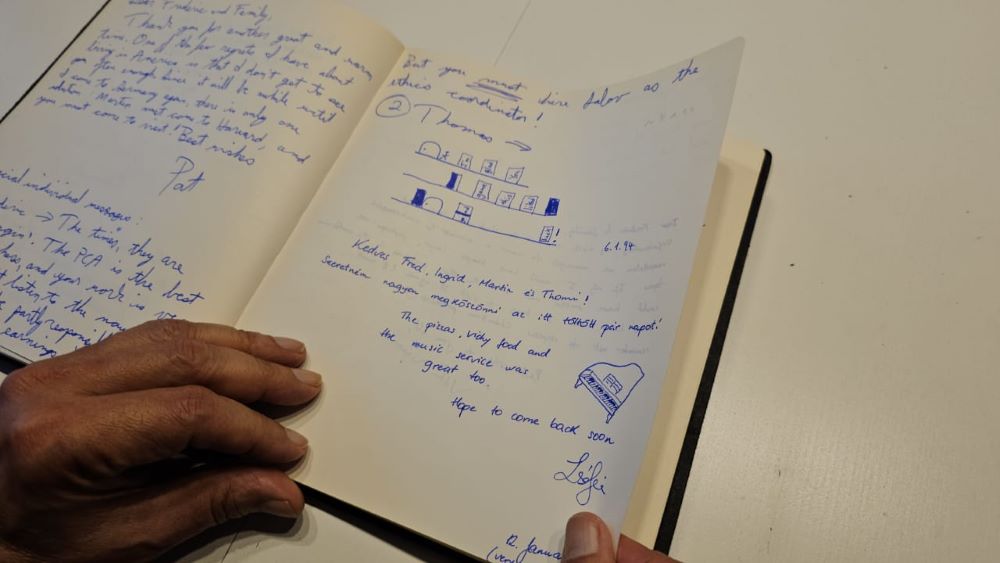 Dear Frederic and Family,
Thank you for another great and warm
time. One of the few regrets I have about
living in America is that I don't get to see
you often enough. Since it will be awhile until
I come to Germany again, there is only one
solution. Martin must come to Harvard, and
you must come to visit! Best wishes
Pat
individual messages:
→ The times, they are
The PCA is the best
and your work is
listen to the
partly responsible
earnings
But you must hire as the
ethics coordinator!
② Thomas →
6.1.94
Kedves Fred, Ingrid, Martin és Thomi!
Szeretném nagyon megköszönni az itt töltött pár napot!
The pizzas, vichy food and
the music service was
great too.
Hope to come back soon
Zsófia
12. Janua